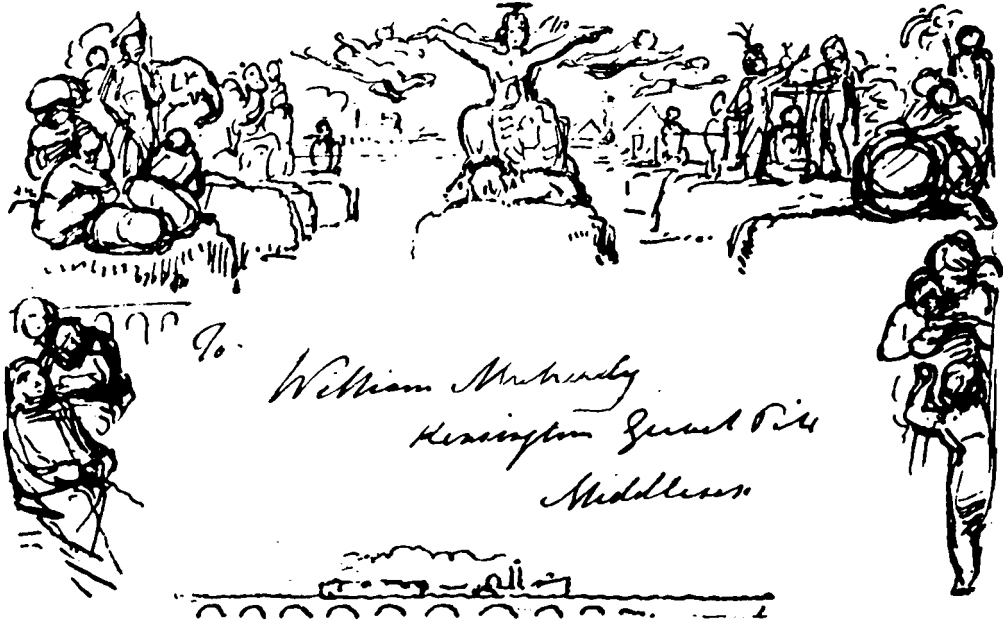 To.
William Mulready
Kensington Gravel Pits
Middlesex